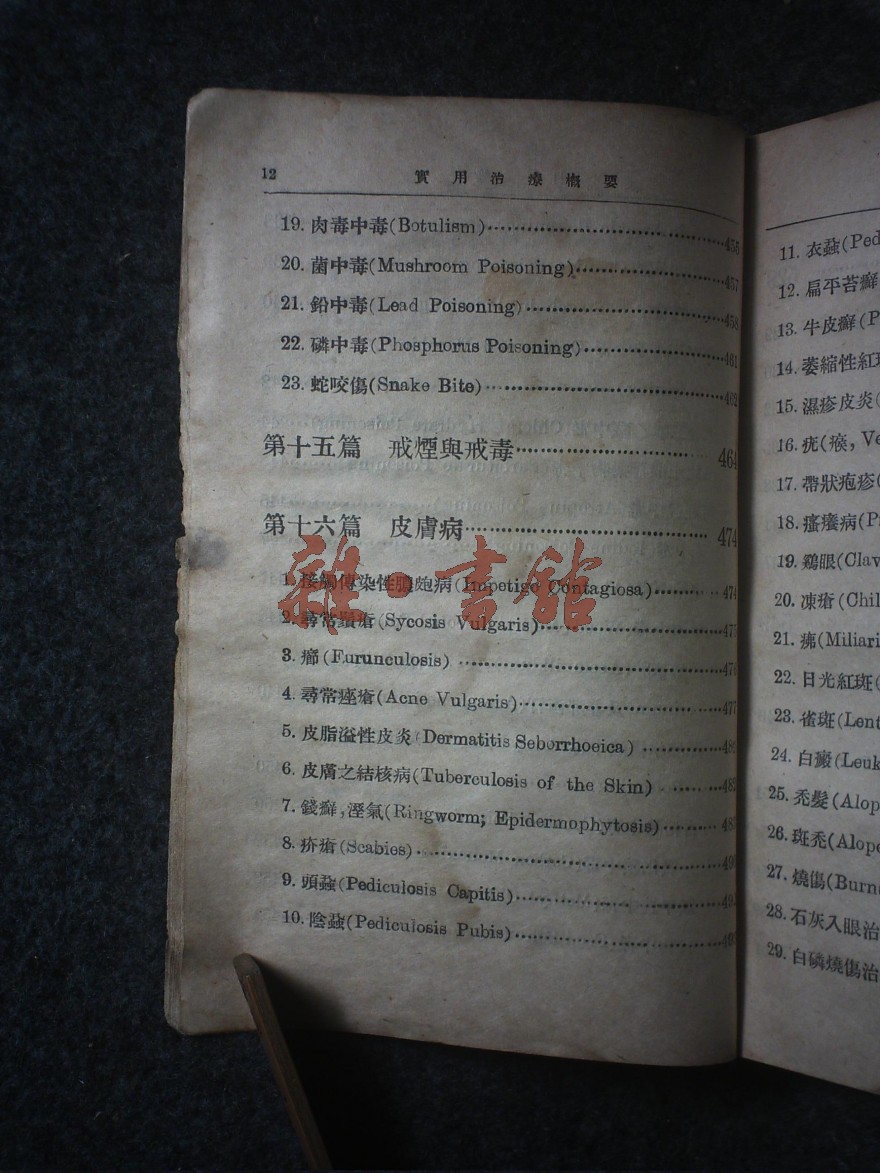 12 實用治療概要
19. 肉毒中毒(Botulism)455
20. 菌中毒(Mushroom Poisoning)457
21. 鉛中毒(Lead Poisoning)458
22. 磷中毒(Phosphorus Poisoning)461
23. 蛇咬傷(Snake Bite)462
第十五篇 戒煙與戒毒464
第十六篇 皮膚病474
雜·書館
1. 接觸傳染性膿皰病(Impetigo Contagiosa)474
2. 尋常鬚瘡(Sycosis Vulgaris)475
3. 癤(Furunculosis)476
4. 尋常痤瘡(Acne Vulgaris)477
5. 皮脂溢性皮炎(Dermatitis Seborrhoeica)
6. 皮膚之結核病(Tuberculosis of the Skin)482
7. 錢癬,溼氣(Ringworm; Epidermophytosis)483
8. 疥瘡(Scabies)
9. 頭蝨(Pediculosis Capitis)
10. 陰蝨(Pediculosis Pubis)
11. 衣蝨(Ped
12. 扁平苔癬
13. 牛皮癬(P
14. 萎縮性紅斑
15. 濕疹皮炎(
16. 疣(瘊, Ve
17. 帶狀疱疹(
18. 瘙癢病(P
19. 鷄眼(Clav
20. 凍瘡(Chil
21. 痱(Miliari
22. 日光紅斑(
23. 雀斑(Lent
24. 白癜(Leuk
25. 禿髮(Alop
26. 斑禿(Alope
27. 燒傷(Burn
28. 石灰入眼治
29. 白磷燒傷治